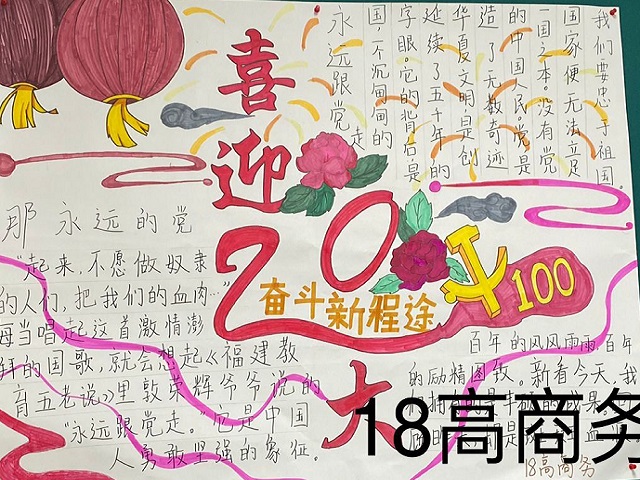 喜迎
20
大
奋斗新程途
100
永远跟党走
我们要忠于祖国。
国家便无法立足
一国之本。没有党
的中国人民。党是
造了无数奇迹
华夏文明是创
延续了五十年的
字眼。它的背后是
国,一个沉甸甸的
那永远的党
"起来,不愿做奴隶
的人们,把我们的血肉…"
每当唱起这首激情澎
拜的国歌,就会想起《福建教
育五老说》里敦荣辉爷爷说的
"永远跟党走。"它是中国
人勇敢坚强的象征。
百年的风风雨雨,百年
的励精图致。新看今天,我
18高商务
18高商务